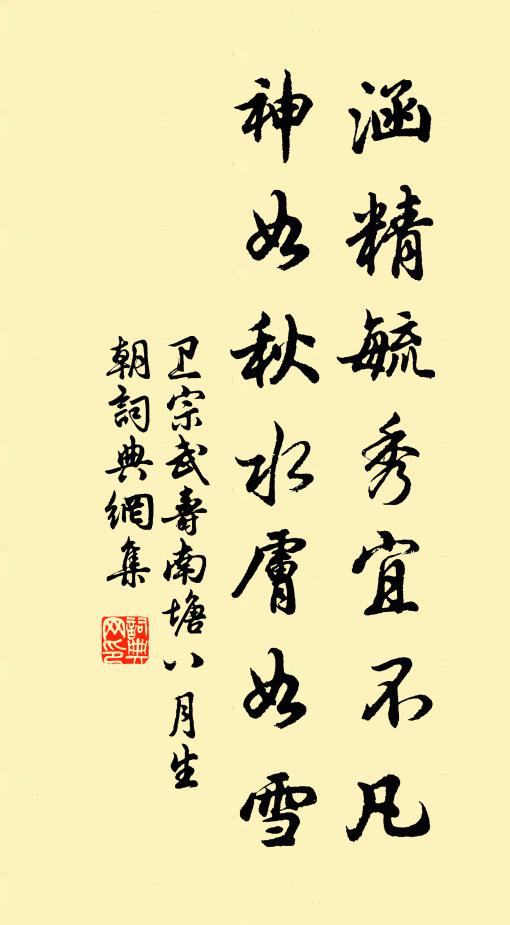 涵精毓秀宜不凡
神如秋水膚如雪
卫宗武壽南塘八月生
朝詞典網集
詞典
网印